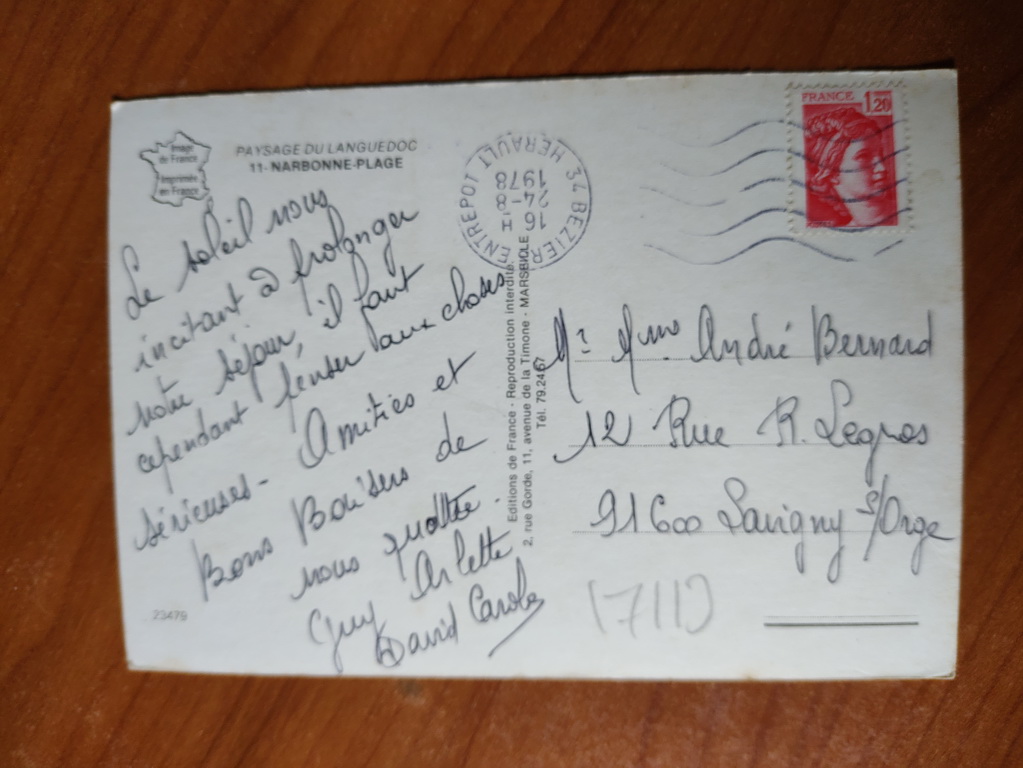 Image
de France
Imprimée
en France
PAYSAGE DU LANGUEDOC
11- NARBONNE-PLAGE
Le soleil nous
incitant à prolonger
notre séjour, il faut
cependant penser aux choses
sérieuses-
Amitiés et
Bons Baisers de
nous quatre.
Guy Arlette
David Carole
23479
Editions de France - Reproduction interdite.
2, rue Gorde, 11, avenue de la Timone - MARSEILLE
Tél. 79.24.67
34 BEZIERS ENTREPOT
HERAULT
16 H
24-8
1978
FRANCE 1,20
Mr Mme André Bernard
12 Rue R. Legros
91600 Savigny s/Orge